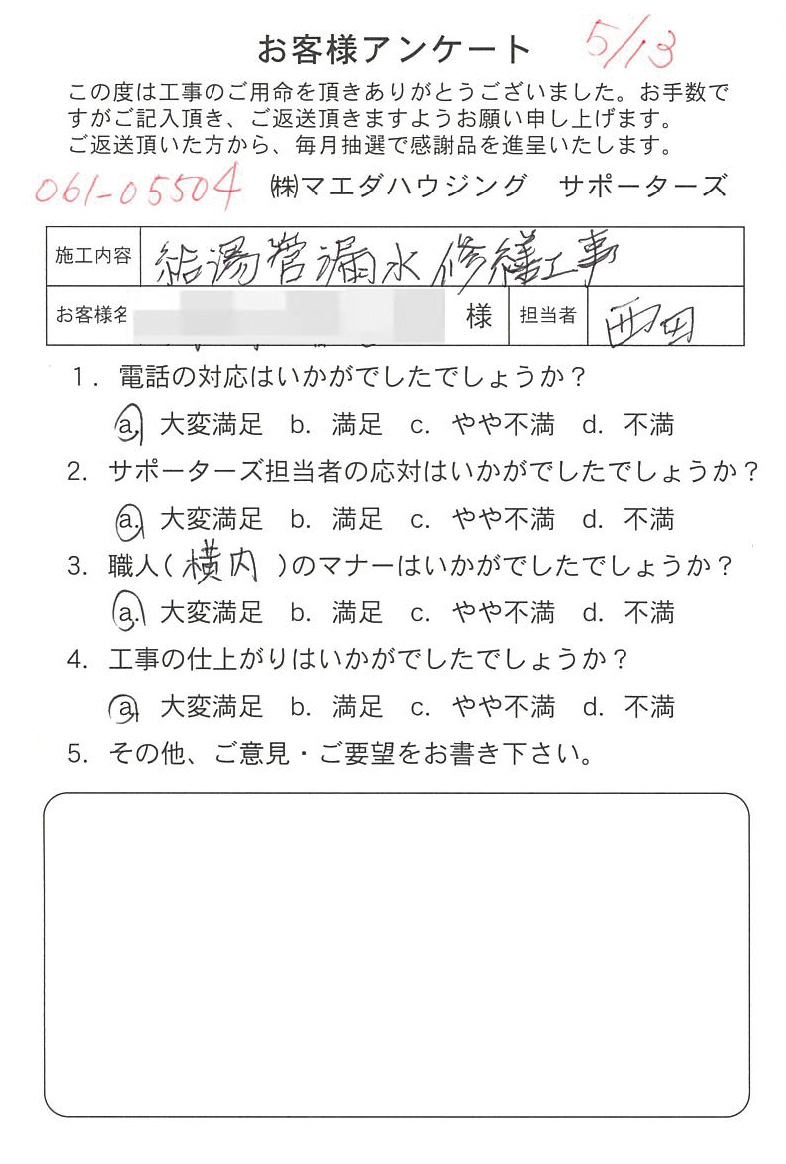 お客様アンケート 5/13
この度は工事のご用命を頂きありがとうございました。お手数で
すがご記入頂き、ご返送頂きますようお願い申し上げます。
ご返送頂いた方から、毎月抽選で感謝品を進呈いたします。
061-05504 ㈱マエダハウジング サポーターズ
施工内容 給湯管漏水修繕工事
お客様名 様 担当者 西田
1. 電話の対応はいかがでしたでしょうか？
a. 大変満足 b. 満足 c. やや不満 d. 不満
2. サポーターズ担当者の応対はいかがでしたでしょうか？
a. 大変満足 b. 満足 c. やや不満 d. 不満
3. 職人(横内)のマナーはいかがでしたでしょうか？
a. 大変満足 b. 満足 c. やや不満 d. 不満
4. 工事の仕上がりはいかがでしたでしょうか？
a. 大変満足 b. 満足 c. やや不満 d. 不満
5. その他、ご意見・ご要望をお書き下さい。